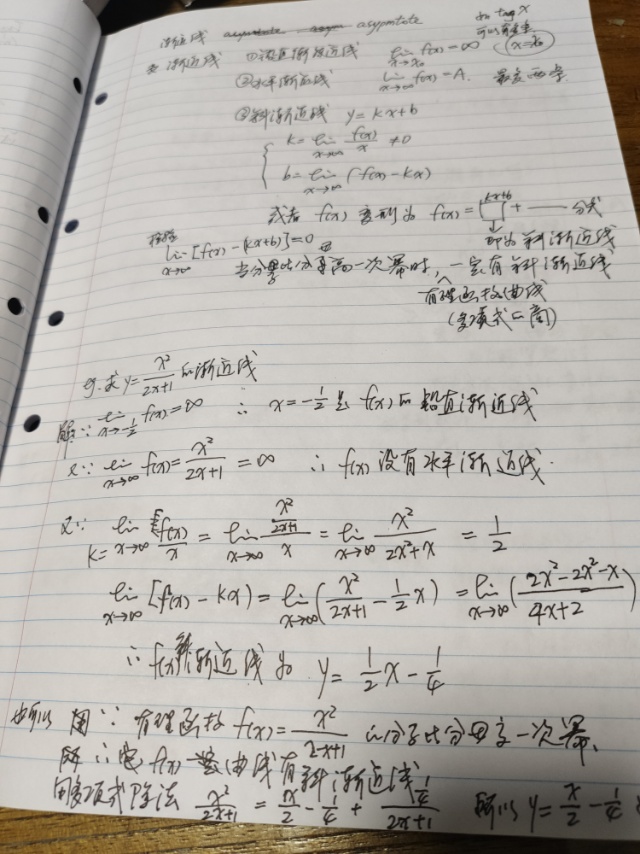 渐近线 asymptote
如 tag x
可以有无数
渐近线 ①铅直渐近线 lim x→x₀ f(x) = ∞ (x=x₀)
②水平渐近线 lim x→∞ f(x) = A. 最多两条
③斜渐近线 y = kx+b
k = lim x→∞ f(x)/x ≠0
b = lim x→∞ (f(x) - kx)
或者 f(x) 变形为 f(x) = □ + —— 分式
kx+b
即为斜渐近线
lim x→∞ [f(x) - (kx+b)] = 0
当分子比分母高一次幂时, 一定有斜渐近线
有理函数曲线
(多项式的商)
eg. 求 y = x²/(2x+1) 的渐近线
解: ∵ lim x→-1/2 f(x) = ∞ ∴ x = -1/2 是 f(x) 的铅直渐近线
又∵ lim x→∞ f(x) = x²/(2x+1) = ∞ ∴ f(x) 没有水平渐近线.
又∵ k = lim x→∞ f(x)/x = lim x→∞ (x²/(2x+1))/x = lim x→∞ x²/(2x²+x) = 1/2
lim x→∞ [f(x) - kx] = lim x→∞ (x²/(2x+1) - 1/2 x) = lim x→∞ ((2x²-2x²-x)/(4x+2))
∴ f(x)斜渐近线为 y = 1/2 x - 1/4
也可以 用 ∵ 有理函数 f(x) = x²/(2x+1) 的分子比分母高一次幂,
∴ f(x) 曲线有斜渐近线
用多项式除法 x²/(2x+1) = x/2 - 1/4 + (1/4)/(2x+1) 所以 y = x/2 - 1/4